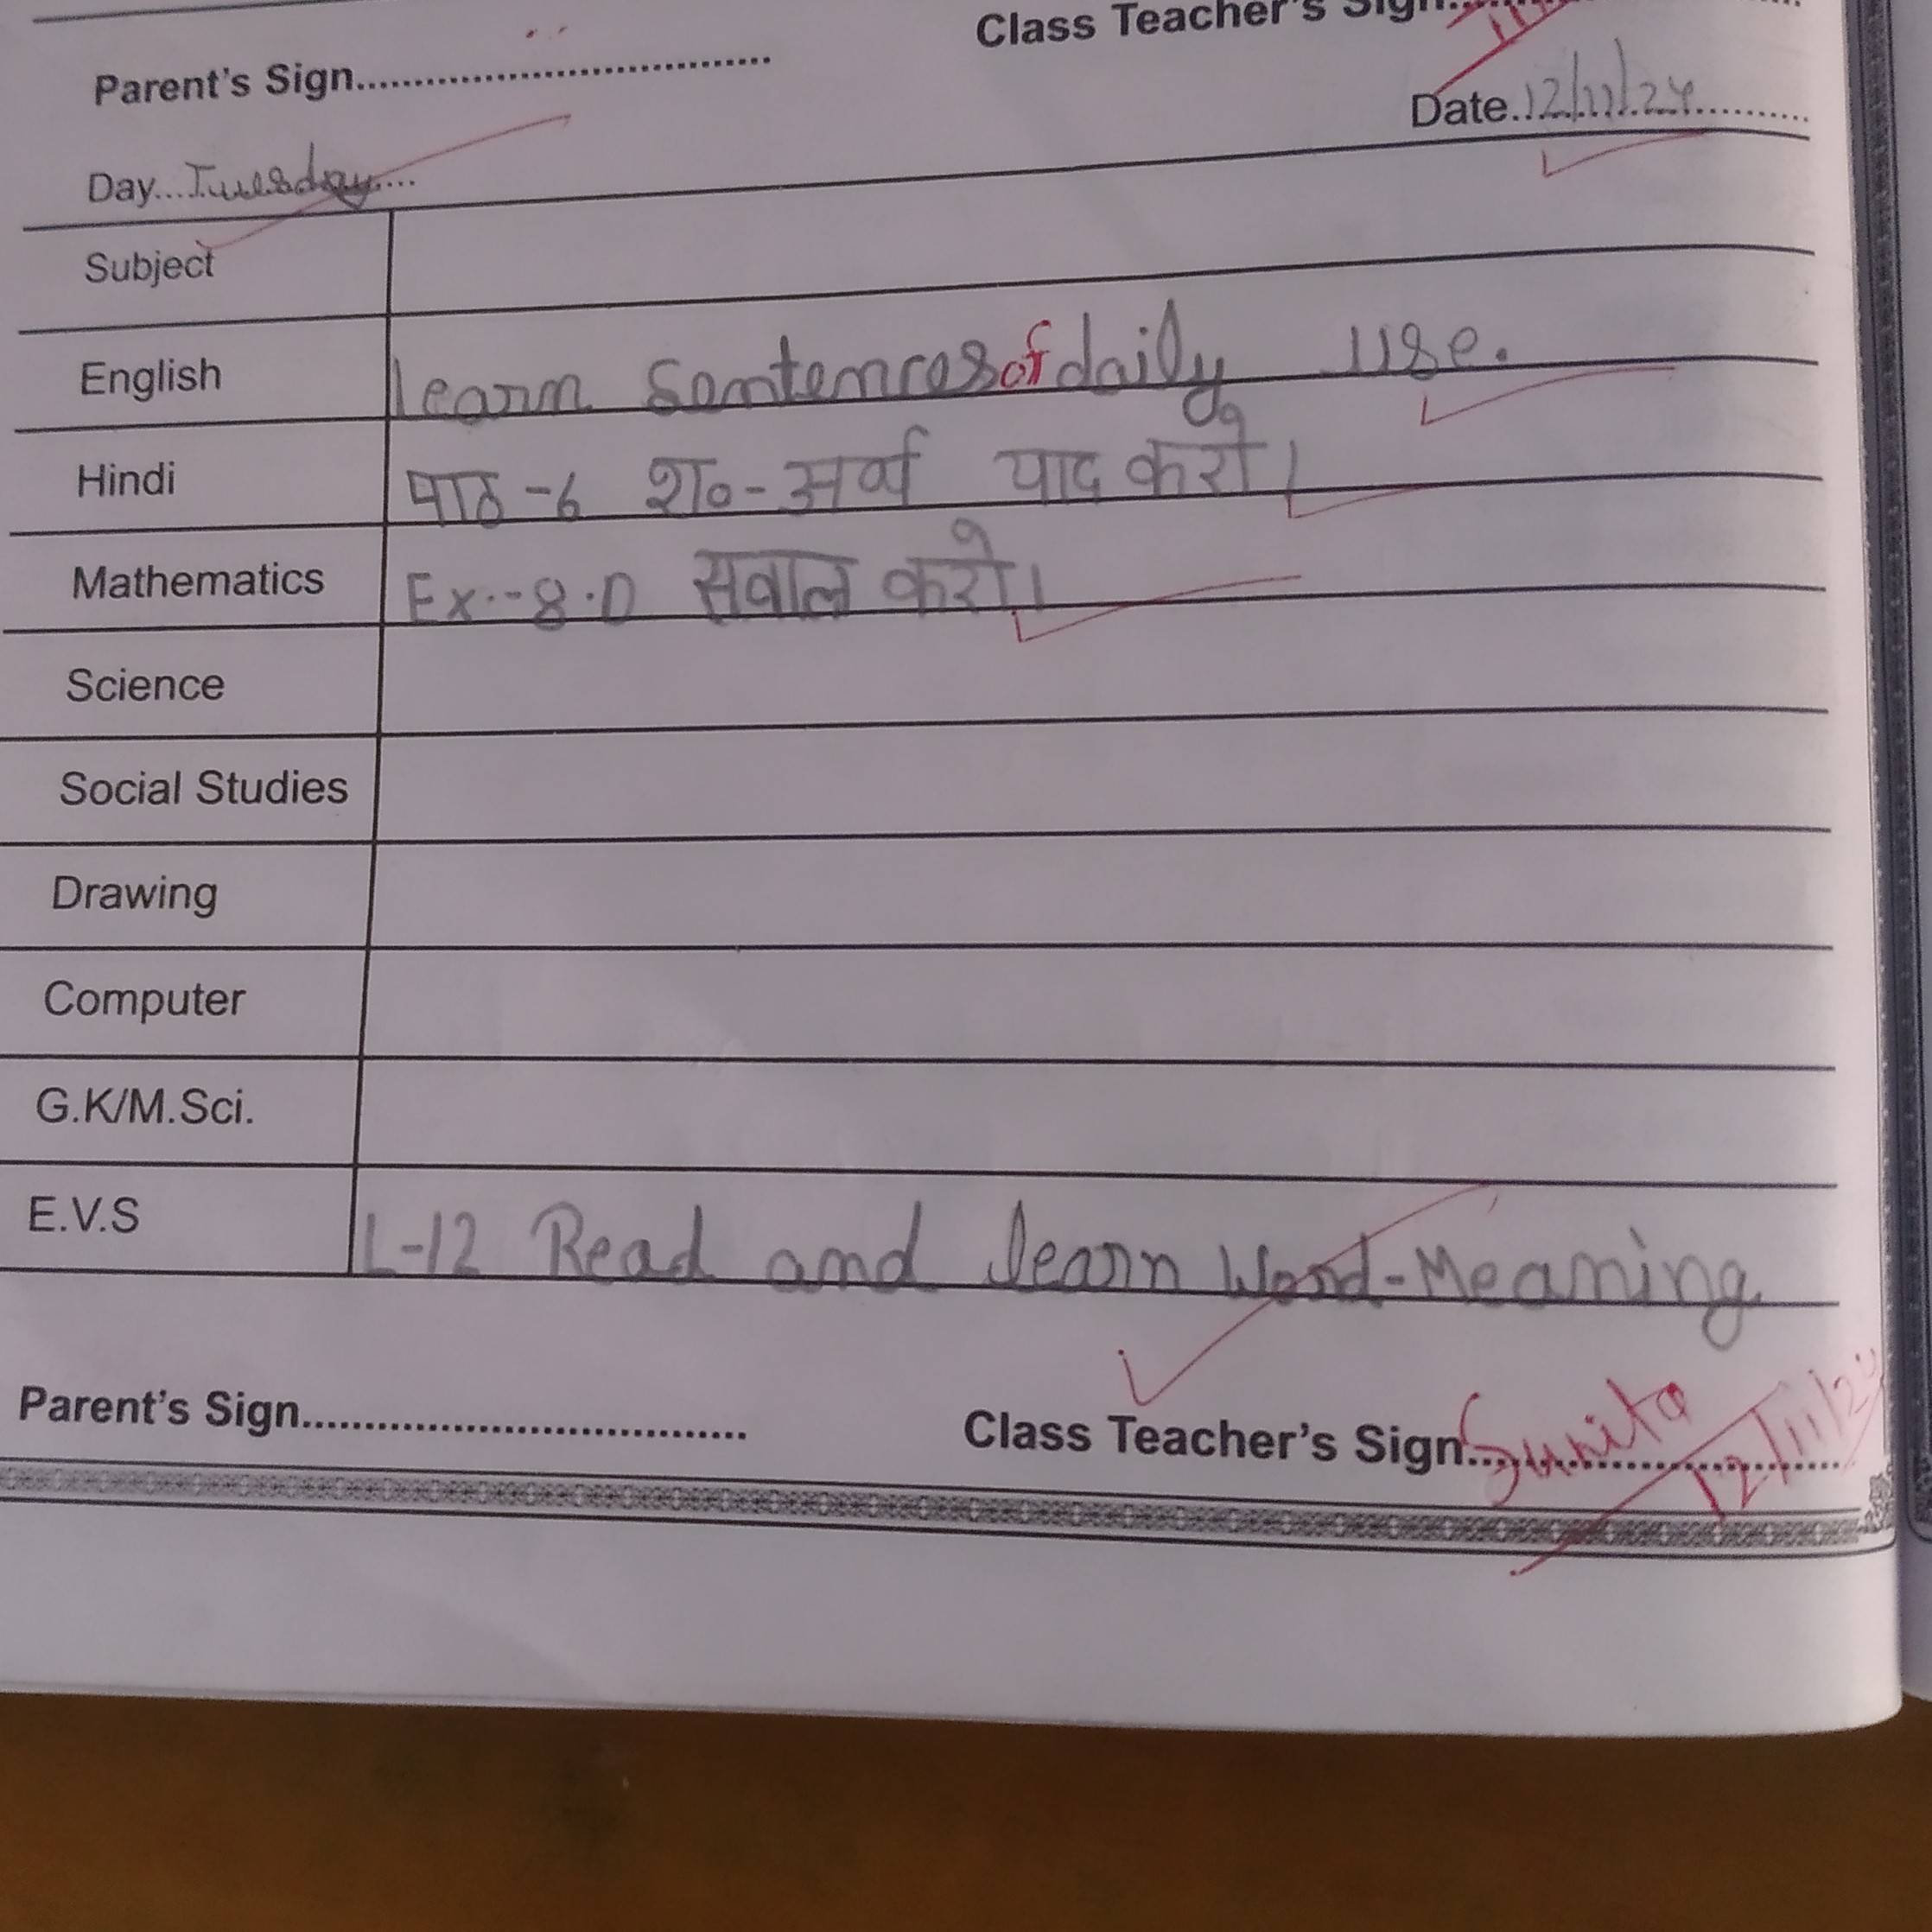 Class Teacher's Sign
Parent's Sign........................................
Date..12/11/24............
Day....Tuesday....
Subject
English Learn Sentences of daily use.
Hindi पाठ -6 श०-अर्थ याद करो।
Mathematics Ex.-8.D सवाल करो।
Science
Social Studies
Drawing
Computer
G.K/M.Sci.
E.V.S L-12 Read and learn Word-Meaning
Parent's Sign........................................
Class Teacher's Sign Sunita 12/11/24